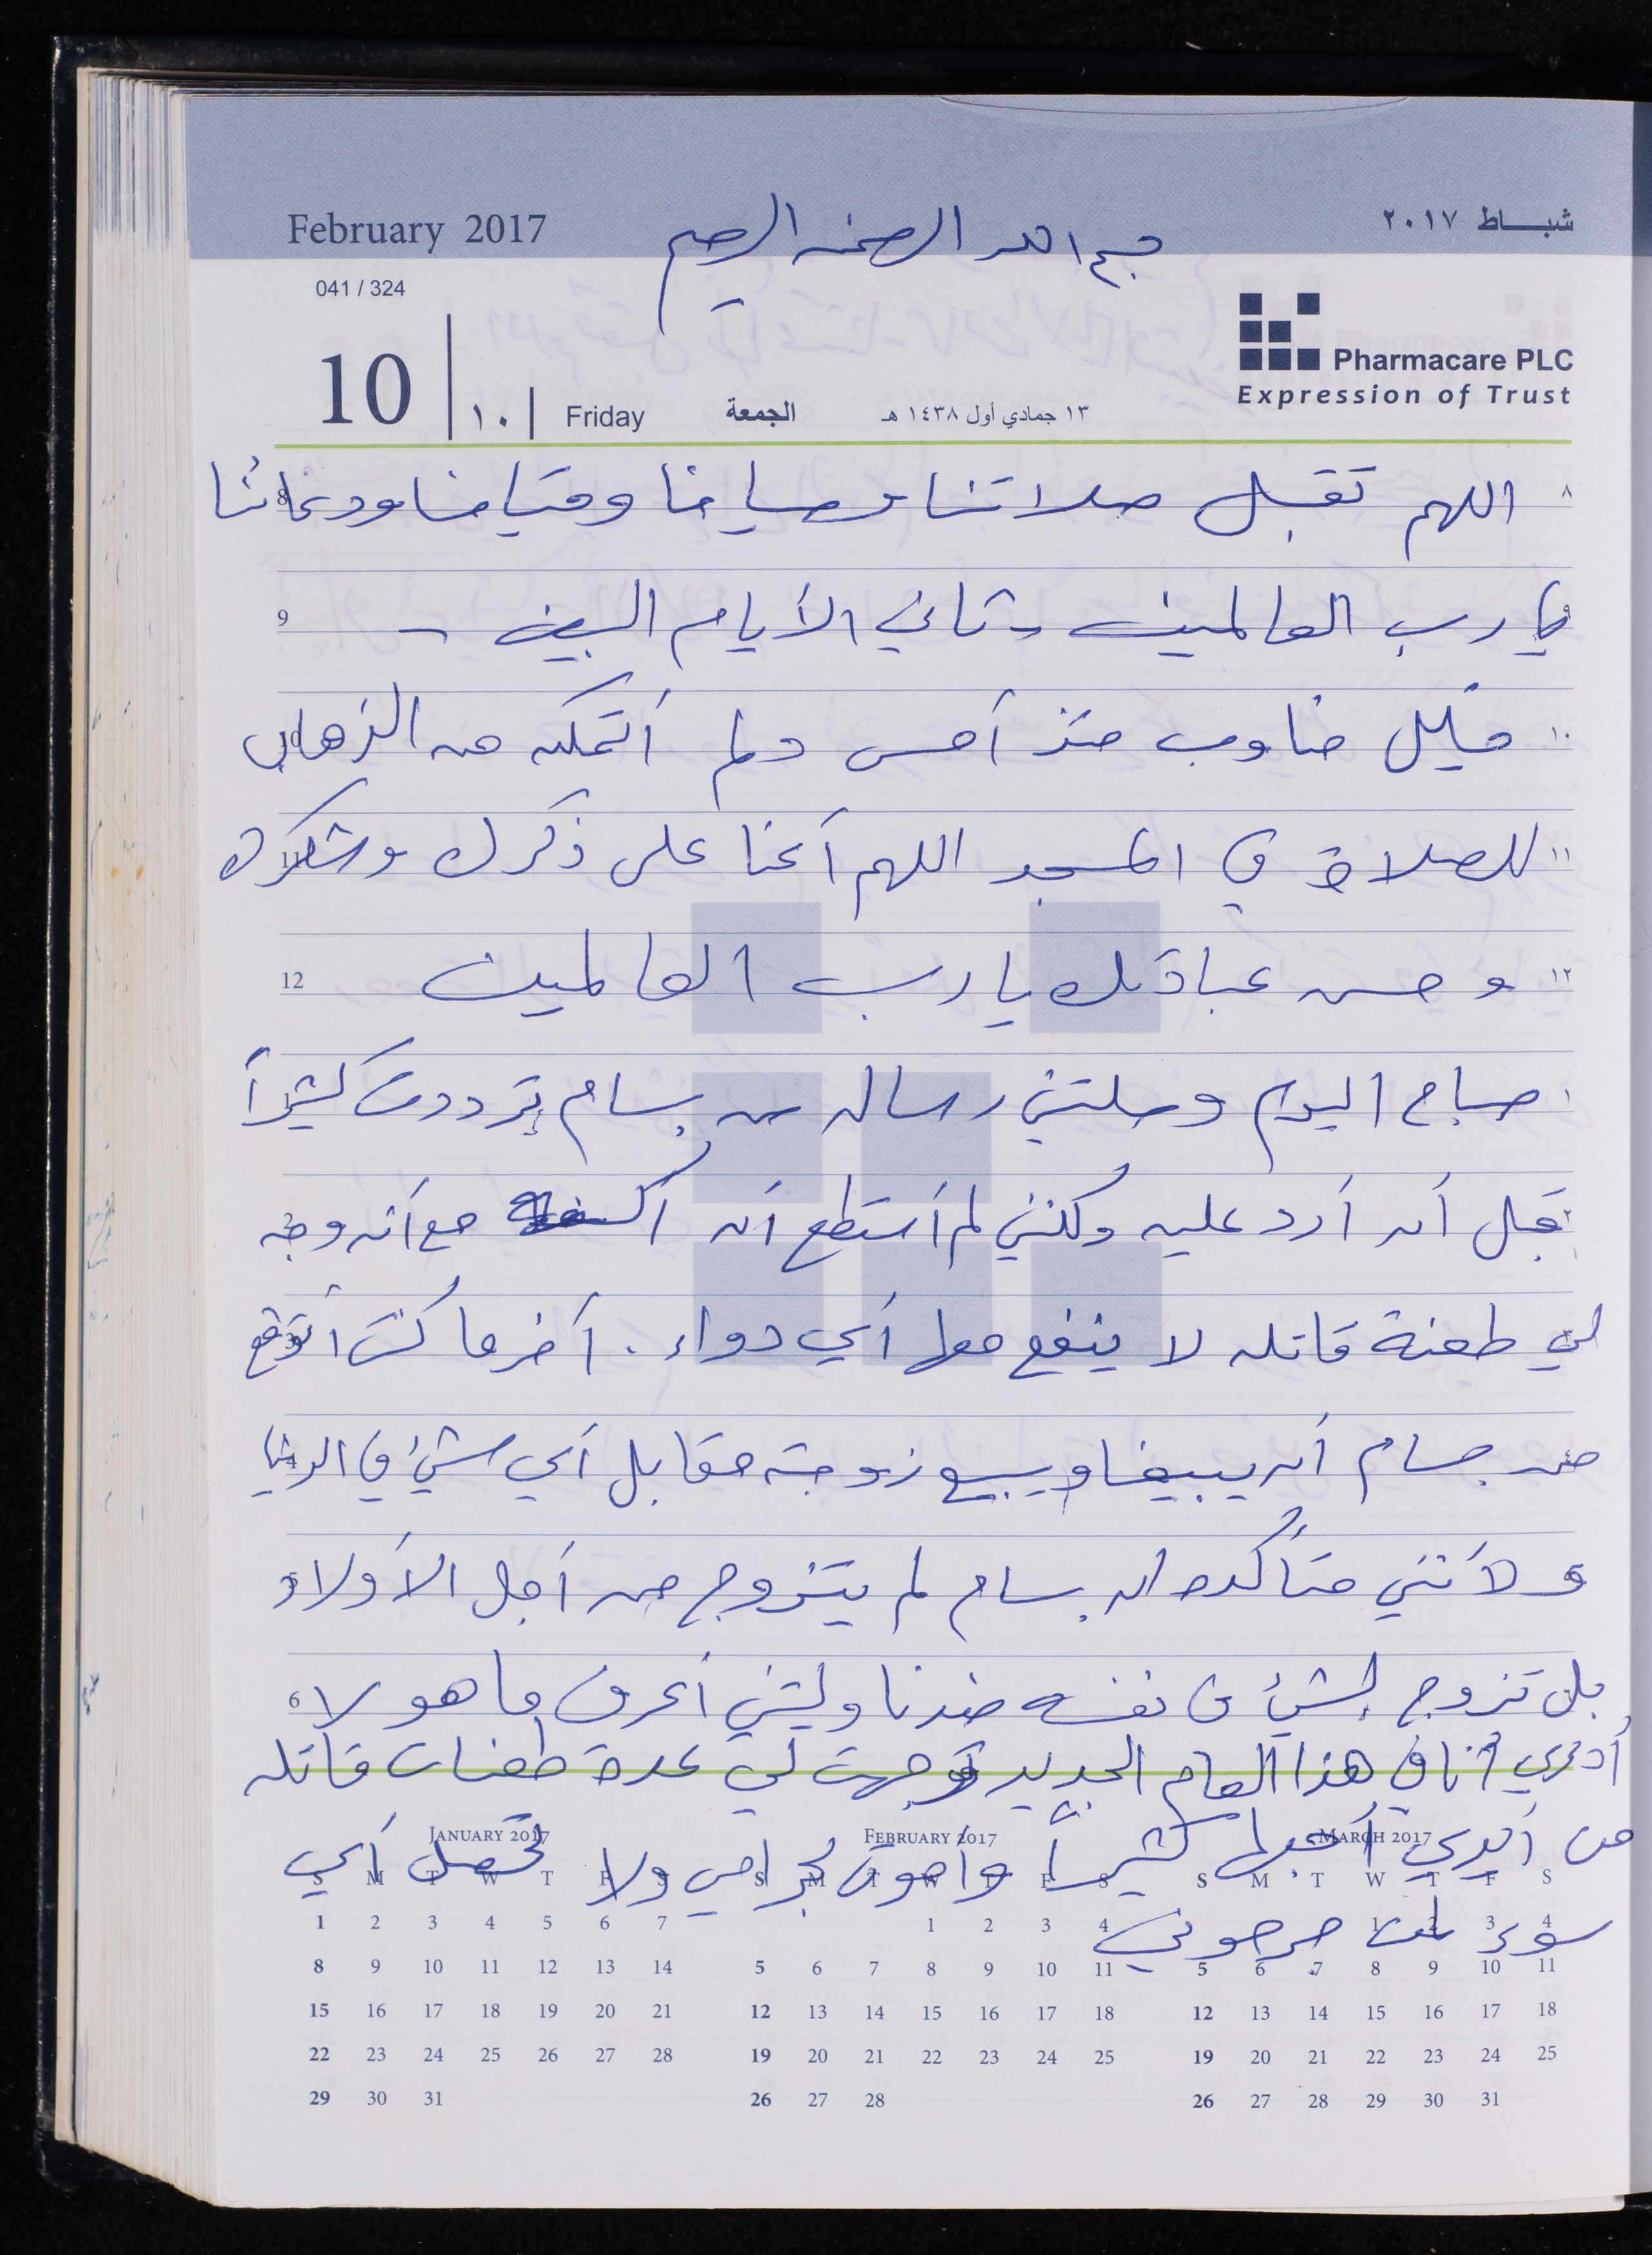 February 2017
بسم الله الرحمن الرحيم
شباط ٢٠١٧
041 / 324
10 ١٠ Friday الجمعة ١٣ جمادي أول ١٤٣٨ هـ
Pharmacare PLC
Expression of Trust
٨ اللهم تقبل صلاتنا وصيامنا وقيامنا ودعائنا 8
٩ يا رب العالمين - ثاني الأيام البيض - 9
١٠ خليل مناوب منذ أمس ولم أتمكن من الذهاب 10
١١ للصلاة في المسجد اللهم أعنا على ذكرك وشكرك 11
١٢ وحسن عبادتك يا رب العالمين 12
١ صباح اليوم وصلتني رساله من بسام ترددت كثيراً 1
٢ قبل أن أرد عليه ولكنني لم أستطع أن مع أنه وجه 2
٣ لي طعنة قاتله لا ينفع معها أي دواء . آخر ما كنت أتوقع 3
٤ من بسام أن يبيعنا ويبيع زوجته مقابل أي شيء في الدنيا 4
٥ ولأنني متأكده ان بسام لم يتزوج من أجل الأولاد 5
٦ بل تزوج لشيء في نفسه ضدنا وليتني أعرف ما هو لا 6
أدري أنا في هذا العام الجديد توجهت لي عدة طعنات قاتله
من أيدي أحبها كثيراً وأموت لجراحي ولا تحصل أي
سوء لمن جرحوني
JANUARY 2017 FEBRUARY 2017 MARCH 2017
S M T W T F S S M T W T F S S M T W T F S
1 2 3 4 5 6 7 1 2 3 4 1 2 3 4
8 9 10 11 12 13 14 5 6 7 8 9 10 11 5 6 7 8 9 10 11
15 16 17 18 19 20 21 12 13 14 15 16 17 18 12 13 14 15 16 17 18
22 23 24 25 26 27 28 19 20 21 22 23 24 25 19 20 21 22 23 24 25
29 30 31 26 27 28 26 27 28 29 30 31